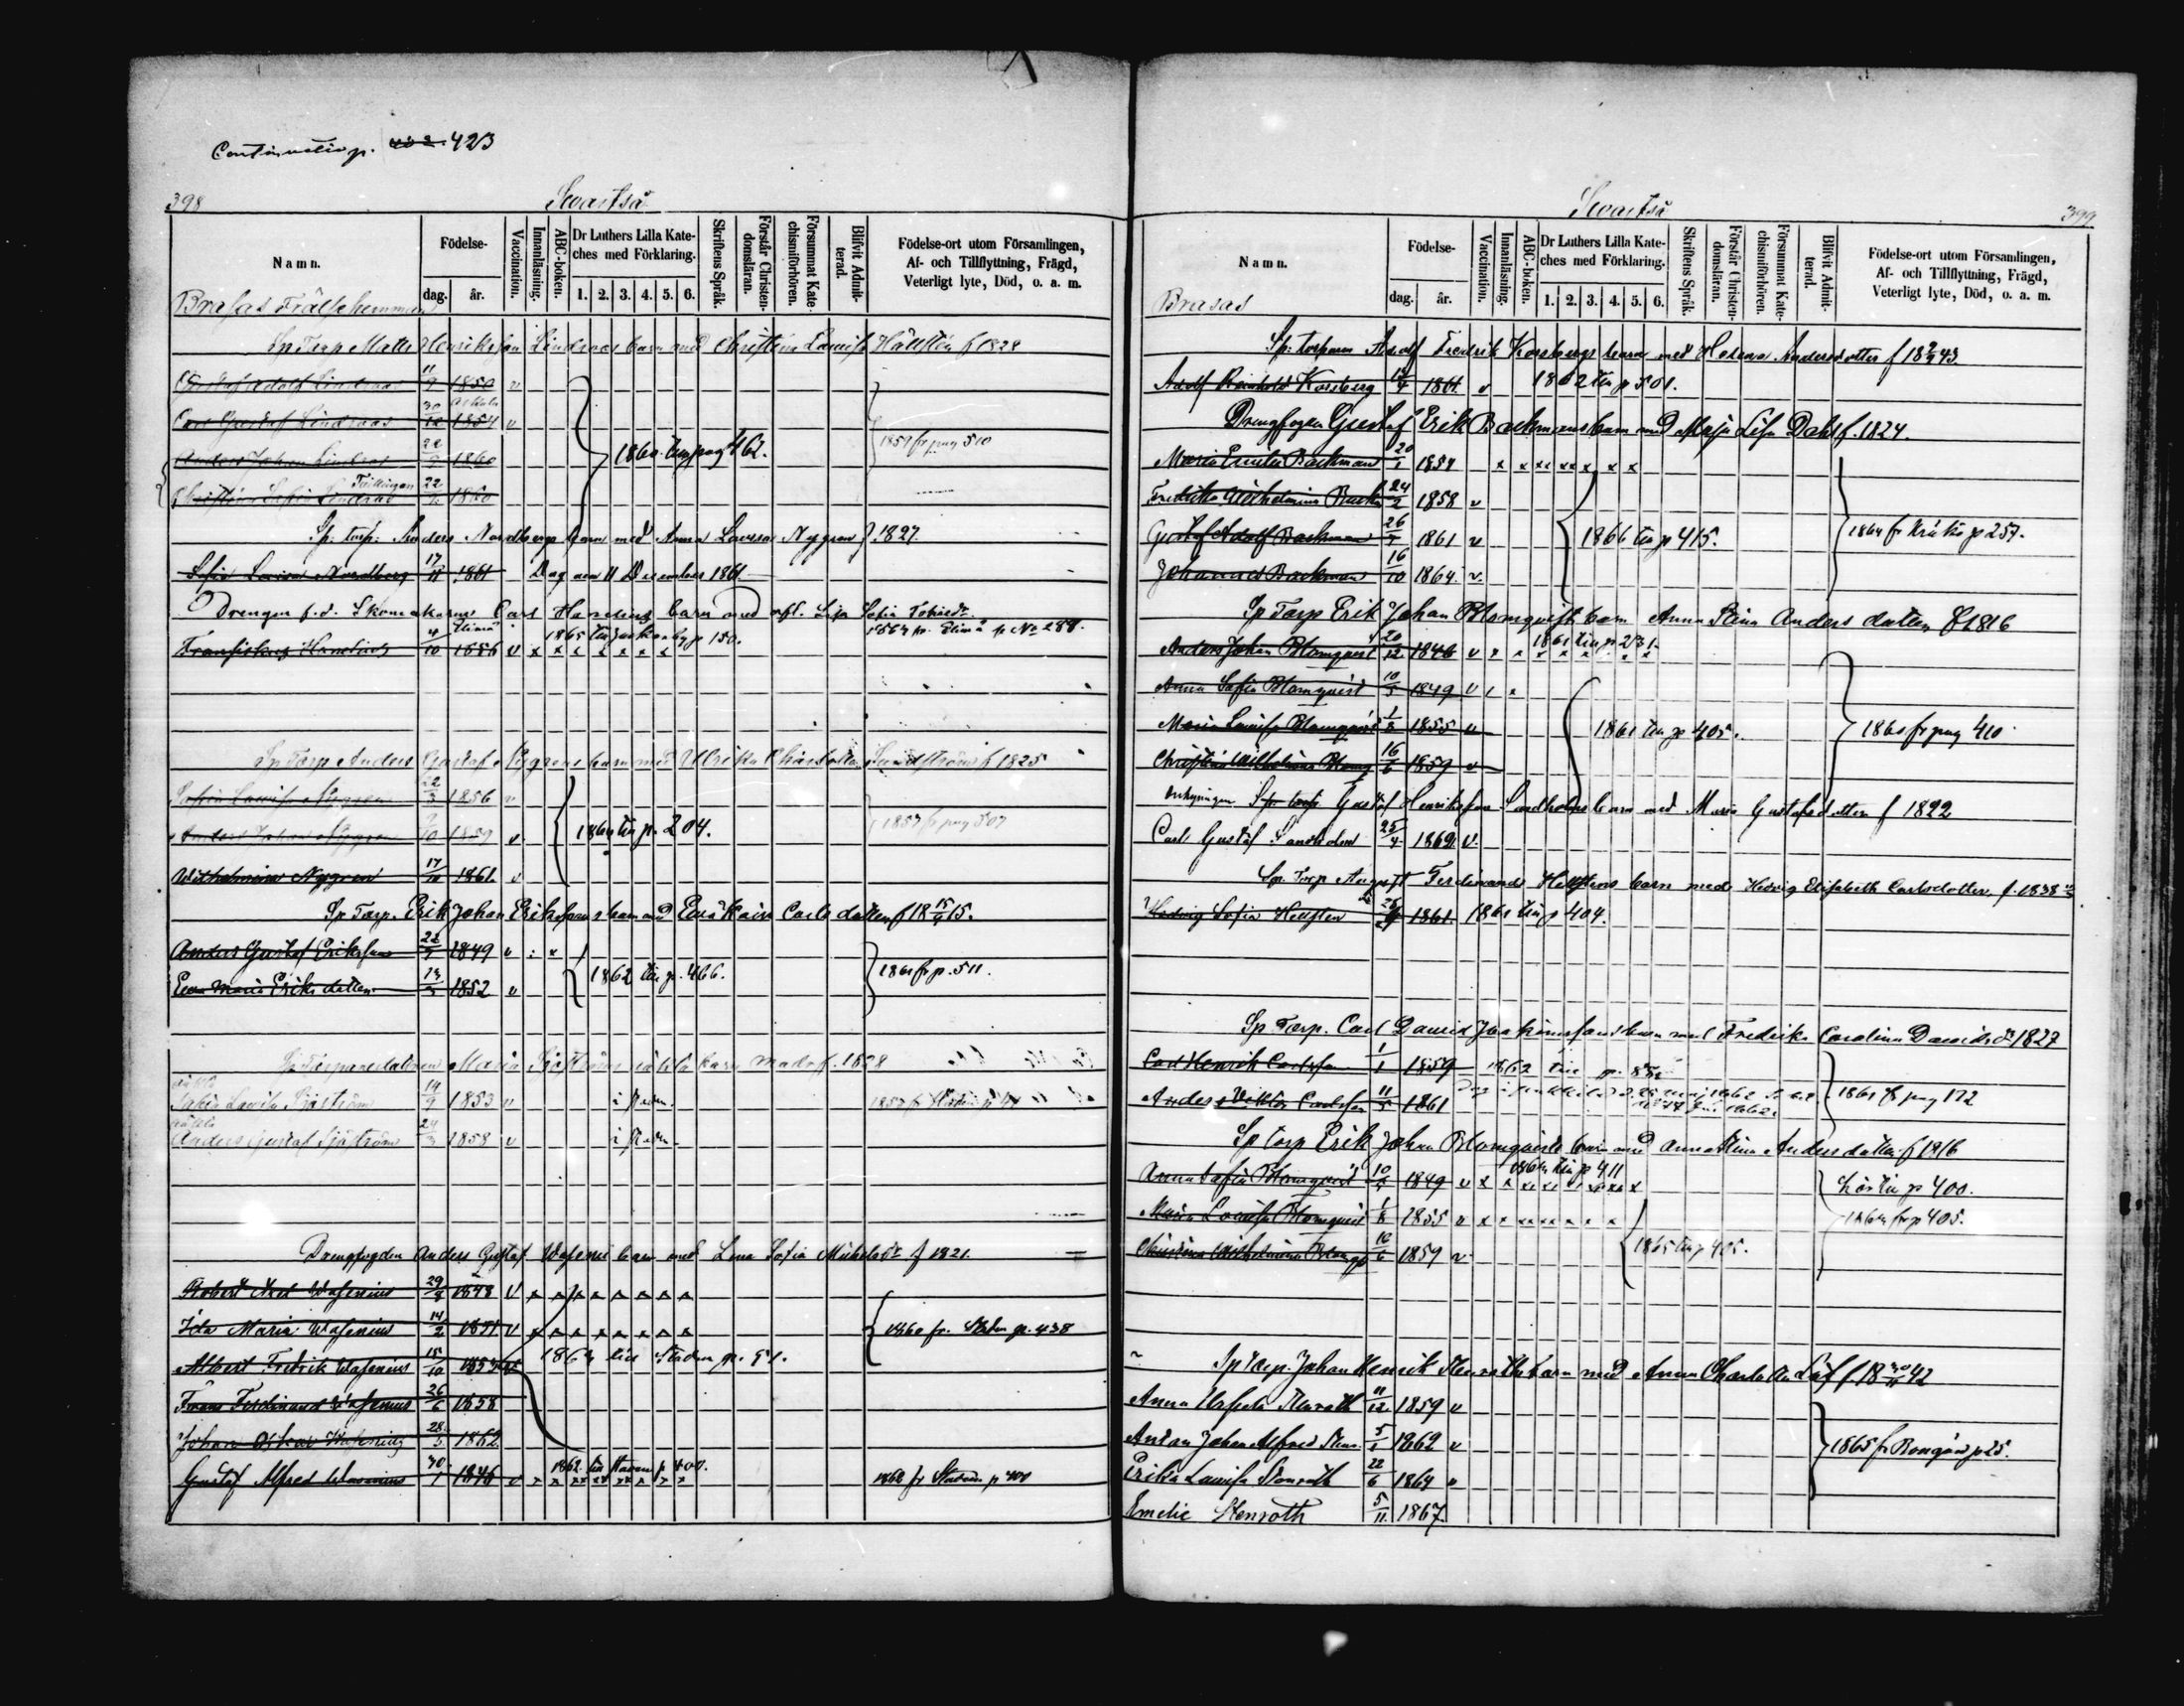 Continuatio p. 423
398
Svartså
Namn.
Födelse-
dag.
år.
Vaccination.
Innanläsning.
ABC-boken.
Dr Luthers Lilla Kate-
ches med Förklaring.
1. 2. 3. 4. 5. 6.
Skriftens Språk.
Förstår Christen-
domsläran.
Försummat Kate-
chismiförhören.
Blifvit Admit-
terad.
Födelse-ort utom Församlingen,
Af- och Tillflyttning, Frägd,
Veterligt lyte, Död, o. a. m.
Brasas Frälsehemman
Sp Torp Matts Henriksson Lindroos barn med Christina Lovisa Hällsten f 1828
Gustaf Adolf Lindroos 11/9 1850 v
Carl Gustaf Lindroos 30/12 1854 v
Anders Johan Lindroos 22/9 1860 1860 till pag 462. 1859 fr pag 510
Tvillingar
Christina Sofia Lindroos 22/9 1860
Sp: torp: Anders Nordbergs barn med Anna Lovisa Nygren f 1827.
Sofia Lovisa Nordberg 17/11 1861 Dog den 11 December 1861.
Drengen f.d. Skomakaren Carl Hamelins barn med Lisa Sofia
Elimä 1865 till p 150. 1864 fr. Elimä p No 288.
Fransiskus Hamelin 4/10 1856 v x x x x x x x
Sp Torp Anders Gustaf Nygrens barn med Ulrika Charlotta Sundström f 1825
Sofia Lovisa Nygren 22/3 1856 v
Anders Johan Nygren 9/10 1859 v 1864 till p. 204. 1857 fr pag 507
Wilhelmina Nygren 17/11 1861 v
Sp Torp. Erik Johan Erikssons barn med Eva Kaisa Carlsdotter f 18 15/9 15.
Anders Gustaf Eriksson 22/9 1849 v : x
Eva Maria Eriksdotter 13/3 1852 v 1862 till p. 466. 1861 fr p. 511.
Sp Torparedottren Maria Sjöströms oäkta barn modr f. 1828
oäkta
Sofia Lovisa Sjöström 14/9 1853 v i Staden.
oäkta
Anders Gustaf Sjöström 24/3 1858 v i Staden.
Drengfogden Anders Gustaf Wasenii barn med Lena Sofia Michelsdr f 1821.
Robert Axel Wasenius 29/9 1848 v x x x x x x x x
Ida Maria Wasenius 14/2 1851 v x x x x x x x x 1860 fr. Staden p. 438
Albert Fredrik Wasenius 15/10 1853 1863 till Staden p. 91.
Frans Ferdinand Wasenius 26/6 1858
Johan Oskar Wasenius 28/3 1862
1862 till Staden p 400.
Gustaf Alfred Wasenius 30/1 1846 v x x xx xx xx x x x 1862 fr Staden p 400
Svartså
399
Namn.
Födelse-
dag.
år.
Vaccination.
Innanläsning.
ABC-boken.
Dr Luthers Lilla Kate-
ches med Förklaring.
1. 2. 3. 4. 5. 6.
Skriftens Språk.
Förstår Christen-
domsläran.
Försummat Kate-
chismiförhören.
Blifvit Admit-
terad.
Födelse-ort utom Församlingen,
Af- och Tillflyttning, Frägd,
Veterligt lyte, Död, o. a. m.
Brasas
Sp: torparen Adolf Fredrik Korsbergs barn med Helena Andersdotter f 18 43
Adolf Reinhold Korsberg 1861 v 1862 till p 501.
Drengfogden Gustaf Erik Backmans barn med Maja Lisa Dahl f. 1824.
Maria Emilia Backman 20/1 1854 x x xx xx x x x
Fredrika Wilhelmina Backm 24/2 1858 v
Gustaf Adolf Backman 26/7 1861 v 1866 till p 415. 1864 fr Kråkö p 257.
Johannes Backman 16/10 1864. v.
Sp Torp Erik Johan Blomqvist barn Anna Stina Anders dotter f 1816
1861 till p 231.
Anders Johan Blomqvist 20/12 1846 v x x x x x x x x
Anna Sofia Blomqvist 10/5 1849 v x
Maria Lovisa Blomqvist 1/8 1855 v 1861 till p 405. 1861 fr pag 410
Christina Wilhelmina Blomq 16/6 1859 v
Sp. torp Gustaf Henriksson Sandholms barn med Maria Gustafsdotter f 1822
Carl Gustaf Sandholm 25/4 1862. v.
Sp. Torp August Ferdinands Hellstens barn med Hedvig Elisabeth Carlsdotter. f. 1838
Hedvig Sofia Hellsten 1861. 1861 till p 404.
Sp Torp. Carl David Joakimssons barn med Fredrika Carolina Davidsdr 1827
Carl Henrik Carlsson 1/1 1859 1862 till p.
Anders Viktor Carlsson 11/5 1861 1861 fr pag 172
Sp torp Erik Johan Blomqvists barn med Anna Stina Andersdotter f 1816
1864 till p 411
Anna Sofia Blomqvist 10/5 1849 v x x xx xx x xx x hör till p 400.
Maria Lovisa Blomqvist 1/8 1855 v x x xx xx x x x 1864 fr p 405.
Christina Wilhelmina Blomqv 16/6 1859 v 1865 till p 405.
Sp Torp. Johan Henrik Stenroths barn med Anna Charlotta Löf f. 18 42
Anna Ursula Stenroth 11/12 1859 v
Anton Johan Alfred Stenr. 5/1 1862 v 1865 fr Bongård p 25.
Erika Lovisa Stenroth 22/6 1864 v
Emelie Stenroth 5/11 1867.